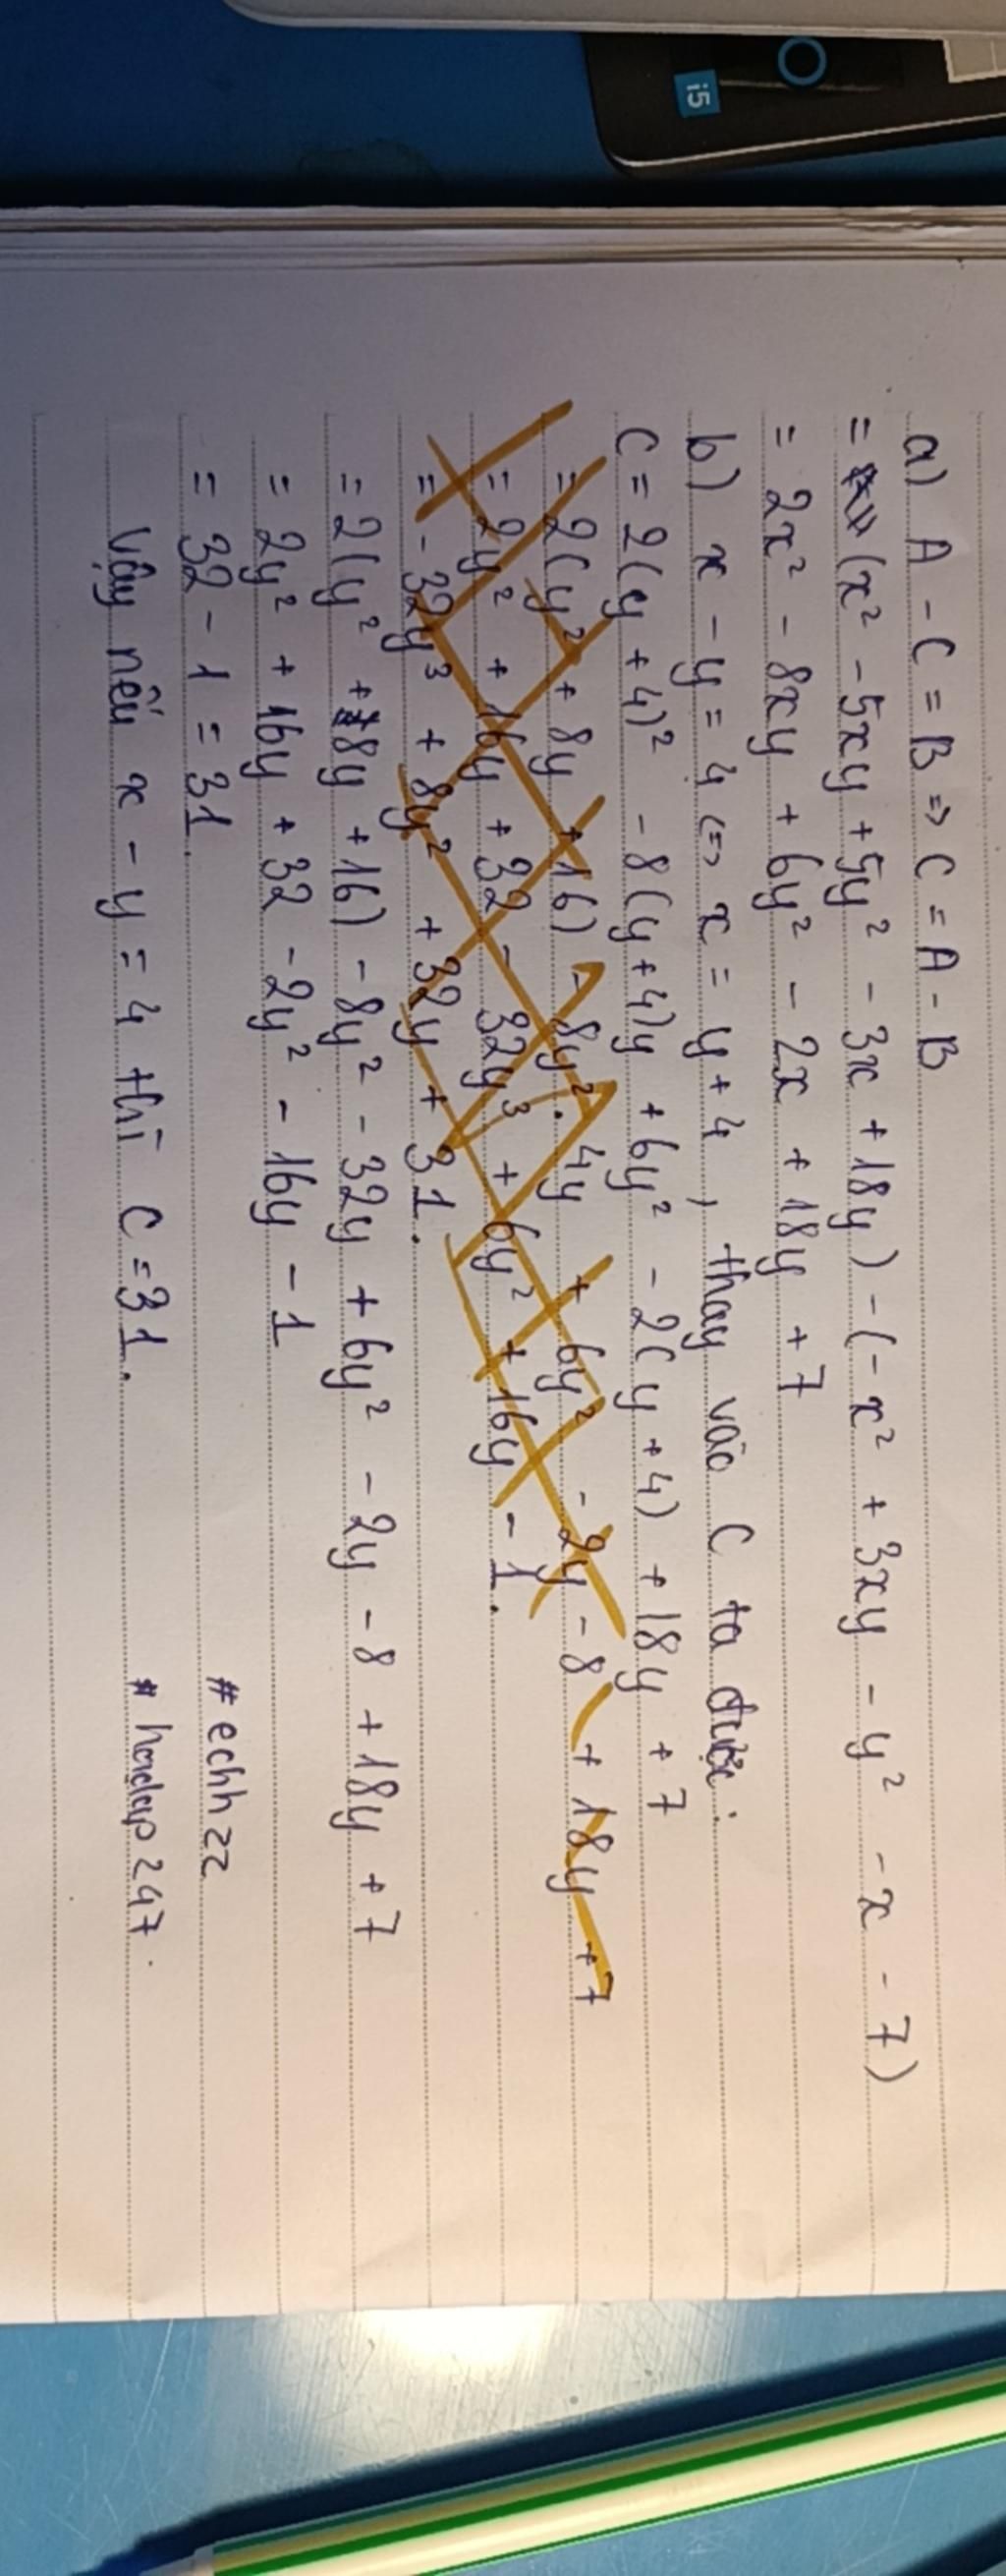 i5
a) A - C = B => C = A - B
= (x² - 5xy + 5y² - 3x + 18y) - (- x² + 3xy - y² - x - 7)
= 2x² - 8xy + 6y² - 2x + 18y + 7
b) x - y = 4 <=> x = y + 4, thay vào C ta được:
C = 2(y + 4)² - 8(y + 4)y + 6y² - 2(y + 4) + 18y + 7
= 2(y² + 8y + 16) - 8y². 4y + 6y² - 2y - 8 + 18y + 7
= 2y² + 16y + 32 - 32y³ + 6y² + 16y - 1.
= - 32y³ + 8y² + 32y + 31.
= 2(y² + 8y + 16) - 8y² - 32y + 6y² - 2y - 8 + 18y + 7
= 2y² + 16y + 32 - 2y² - 16y - 1
= 32 - 1 = 31.
Vậy nếu x - y = 4 thì C = 31.
#echh22
#hoidap247.